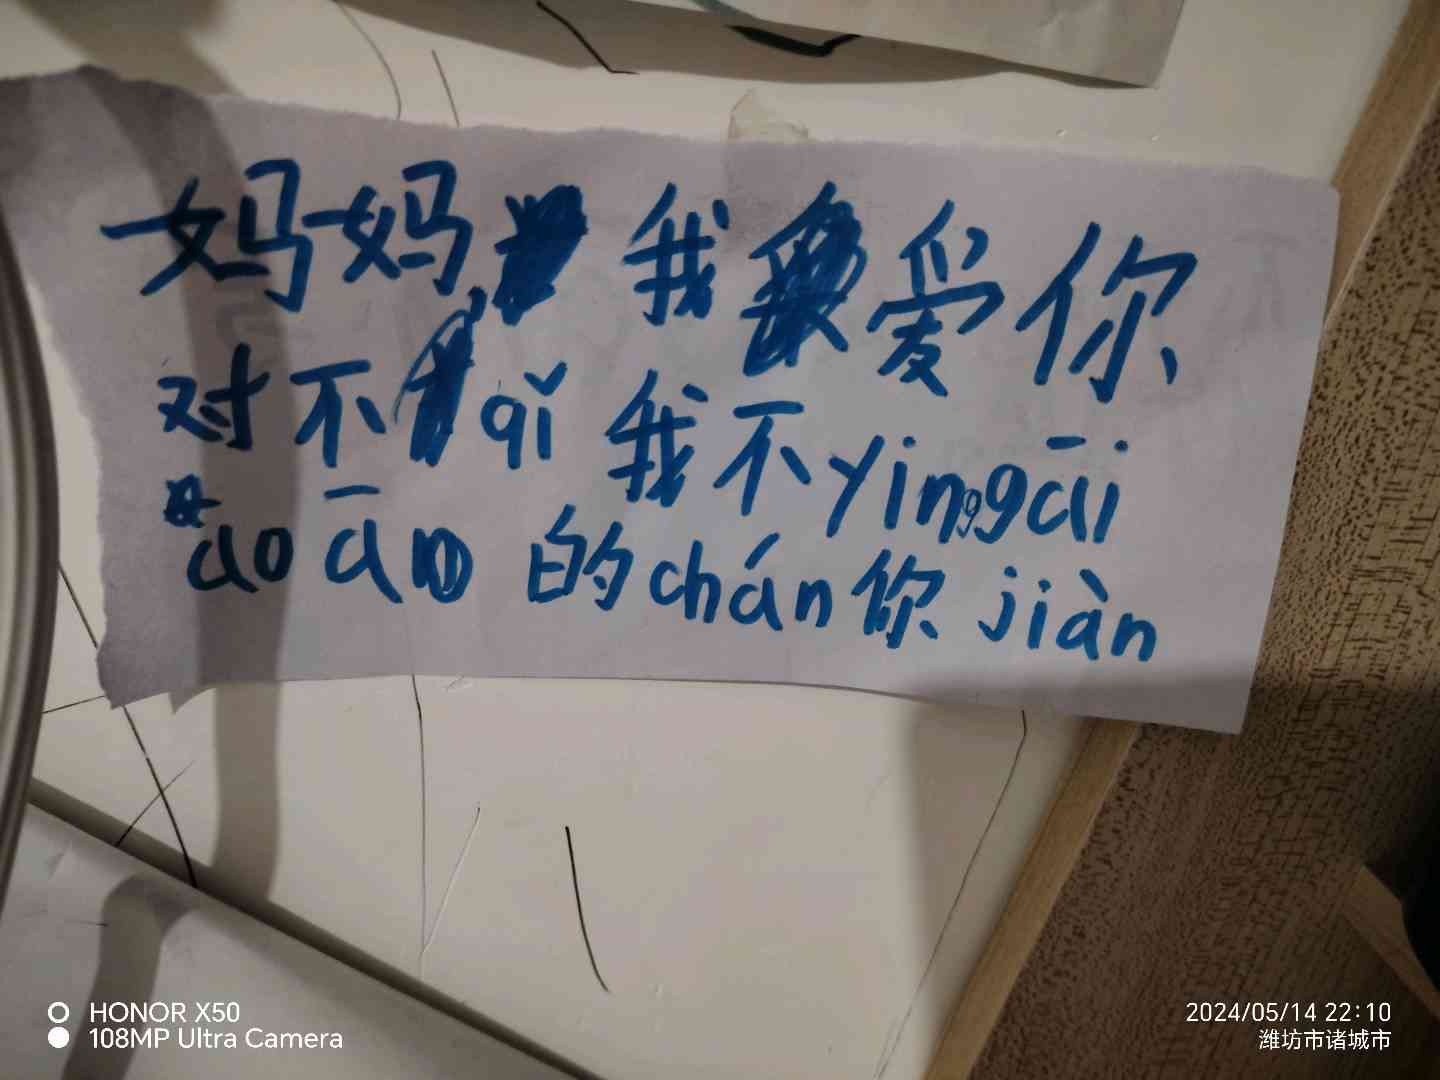 妈妈我爱你
对不qǐ我不yīnggāi
āo的chán你jiàn
HONOR X50
108MP Ultra Camera
2024/05/14 22:10
潍坊市诸城市